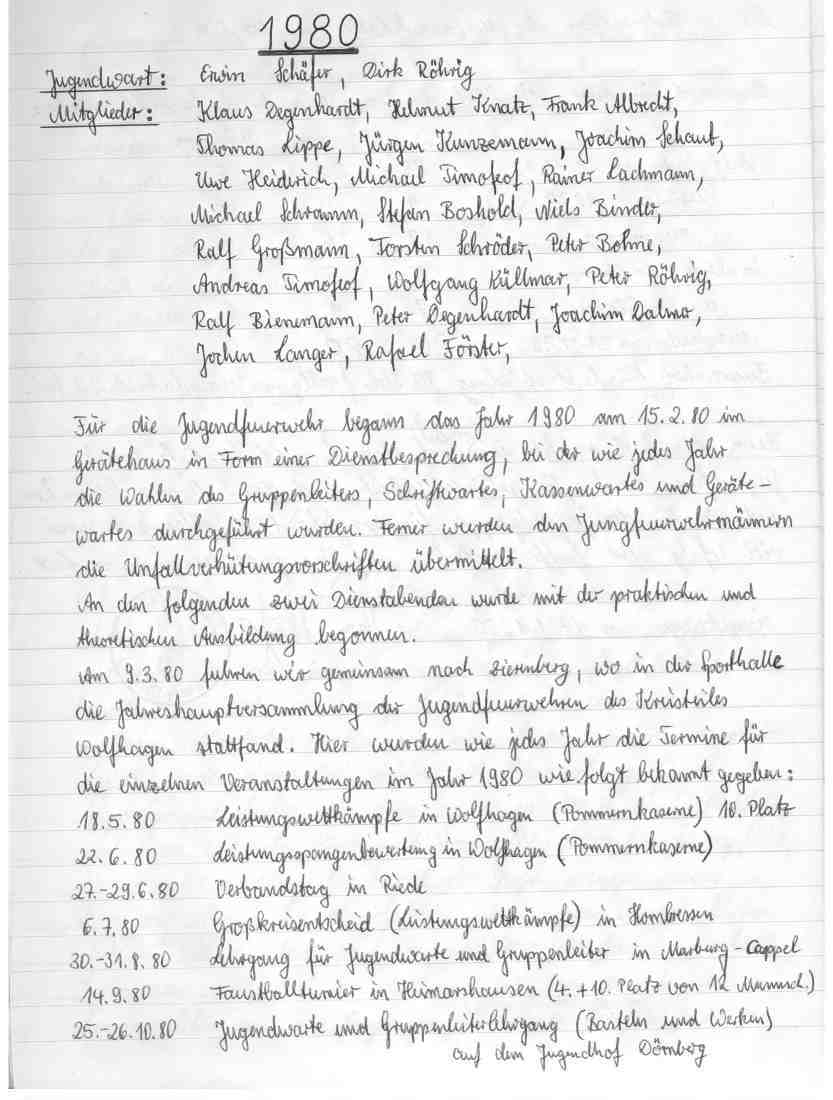 1980
Jugendwart: Erwin Schäfer, Dirk Röhrig
Mitglieder: Klaus Degenhardt, Helmut Knatz, Frank Albrecht,
Thomas Lippe, Jürgen Kunzemann, Joachim Schaub,
Uwe Heiderich, Michael Timofeof, Rainer Lachmann,
Michael Schramm, Stefan Boshold, Niels Binder,
Ralf Großmann, Torsten Schröder, Peter Bohne,
Andreas Timofeof, Wolfgang Küllmar, Peter Röhrig,
Ralf Bienemann, Peter Degenhardt, Joachim Dalmer,
Jochen Langer, Rafael Förster,
Für die Jugendfeuerwehr begann das Jahr 1980 am 15.2.80 im
Gerätehaus in Form einer Dienstbesprechung, bei der wie jedes Jahr
die Wahlen des Gruppenleiters, Schriftwartes, Kassenwartes und Geräte-
wartes durchgeführt wurden. Ferner wurden den Jungfeuerwehrmännern
die Unfallverhütungsvorschriften übermittelt.
An den folgenden zwei Dienstabenden wurde mit der praktischen und
theoretischen Ausbildung begonnen.
Am 9.3.80 fuhren wir gemeinsam nach Zierenberg, wo in der Sporthalle
die Jahreshauptversammlung der Jugendfeuerwehren des Kreisteiles
Wolfhagen stattfand. Hier wurden wie jedes Jahr die Termine für
die einzelnen Veranstaltungen im Jahr 1980 wie folgt bekannt gegeben:
18.5.80 Leistungswettkämpfe in Wolfhagen (Pommernkaserne) 10. Platz
22.6.80 Leistungsspangenbewertung in Wolfhagen (Pommernkaserne)
27.-29.6.80 Verbandstag in Riede
6.7.80 Großkreisentscheid (Leistungswettkämpfe) in Hombressen
30.-31.8.80 Lehrgang für Jugendwarte und Gruppenleiter in Marburg-Cappel
14.9.80 Faustballturnier in Heimarshausen (4.+10. Platz von 12 Mannsch.)
25.-26.10.80 Jugendwarte und Gruppenleiterlehrgang (Basteln und Werken)
auf dem Jugendhof Dörnberg